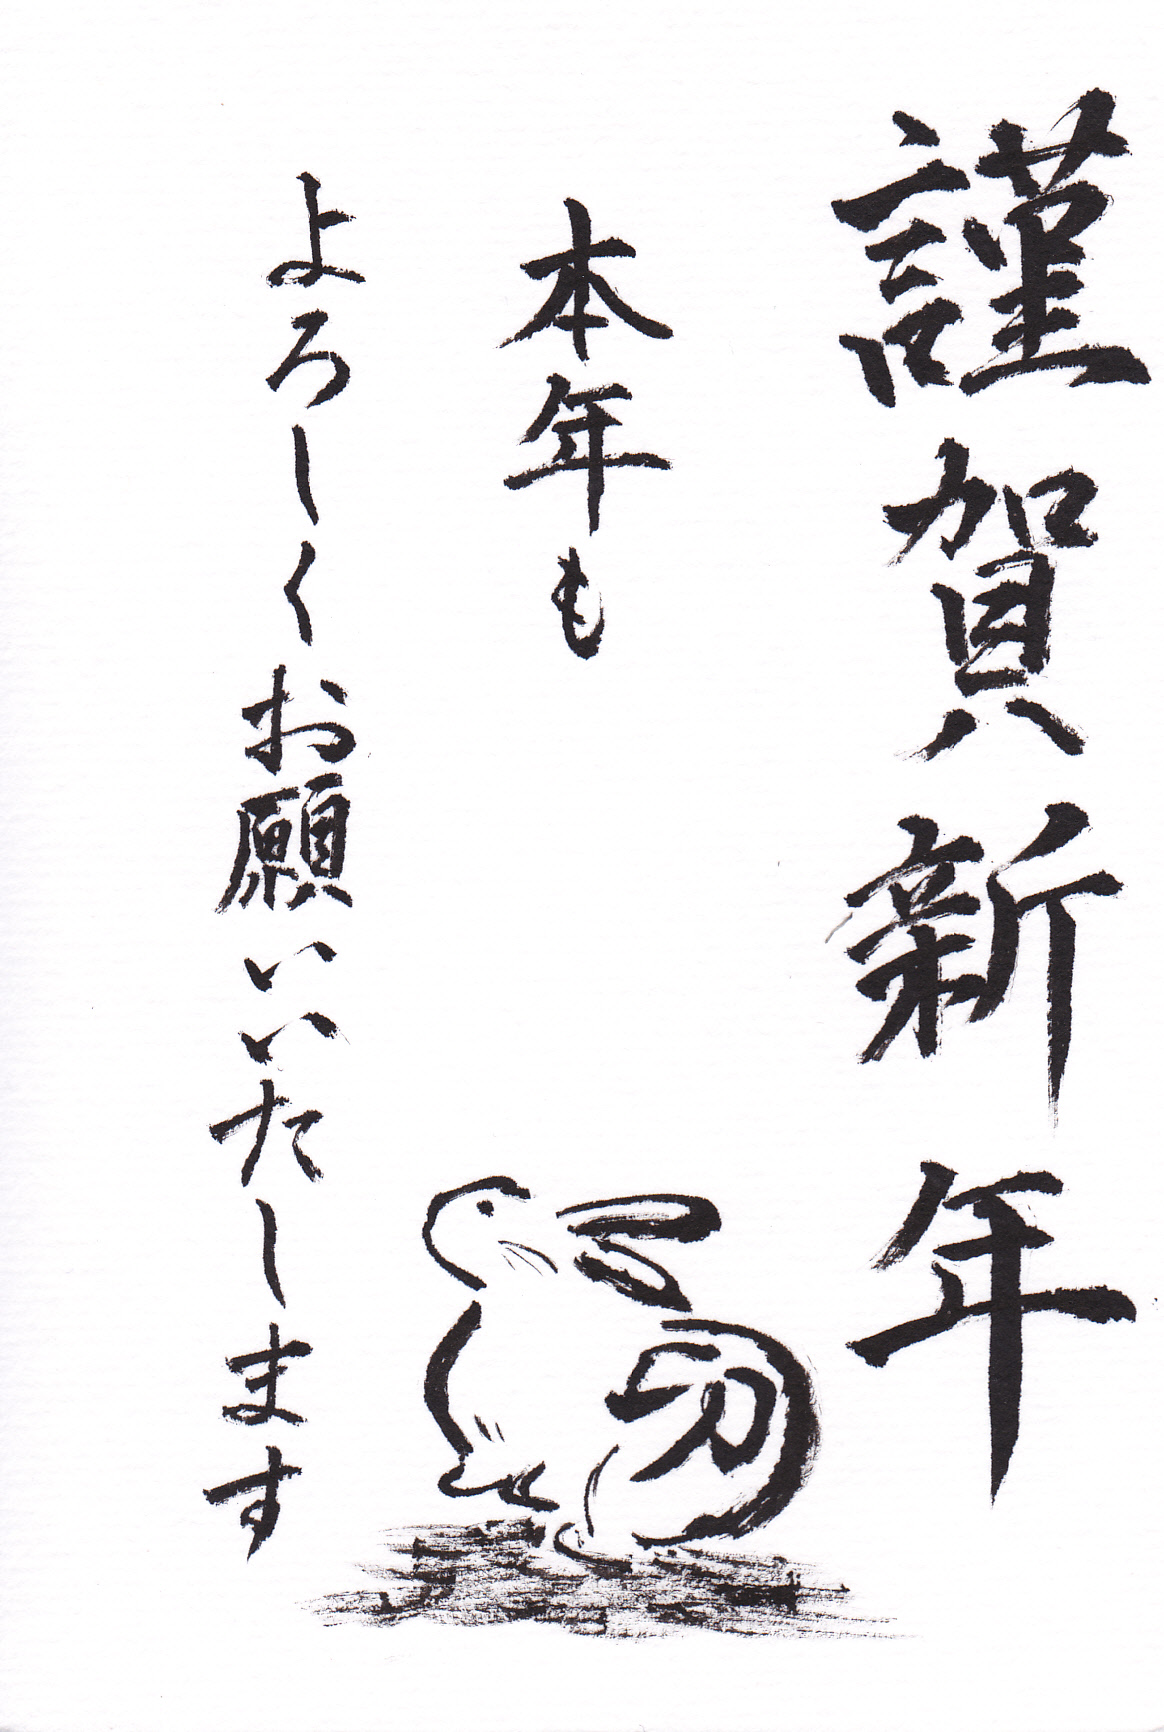 謹賀新年
本年も
よろしくお願いいたします